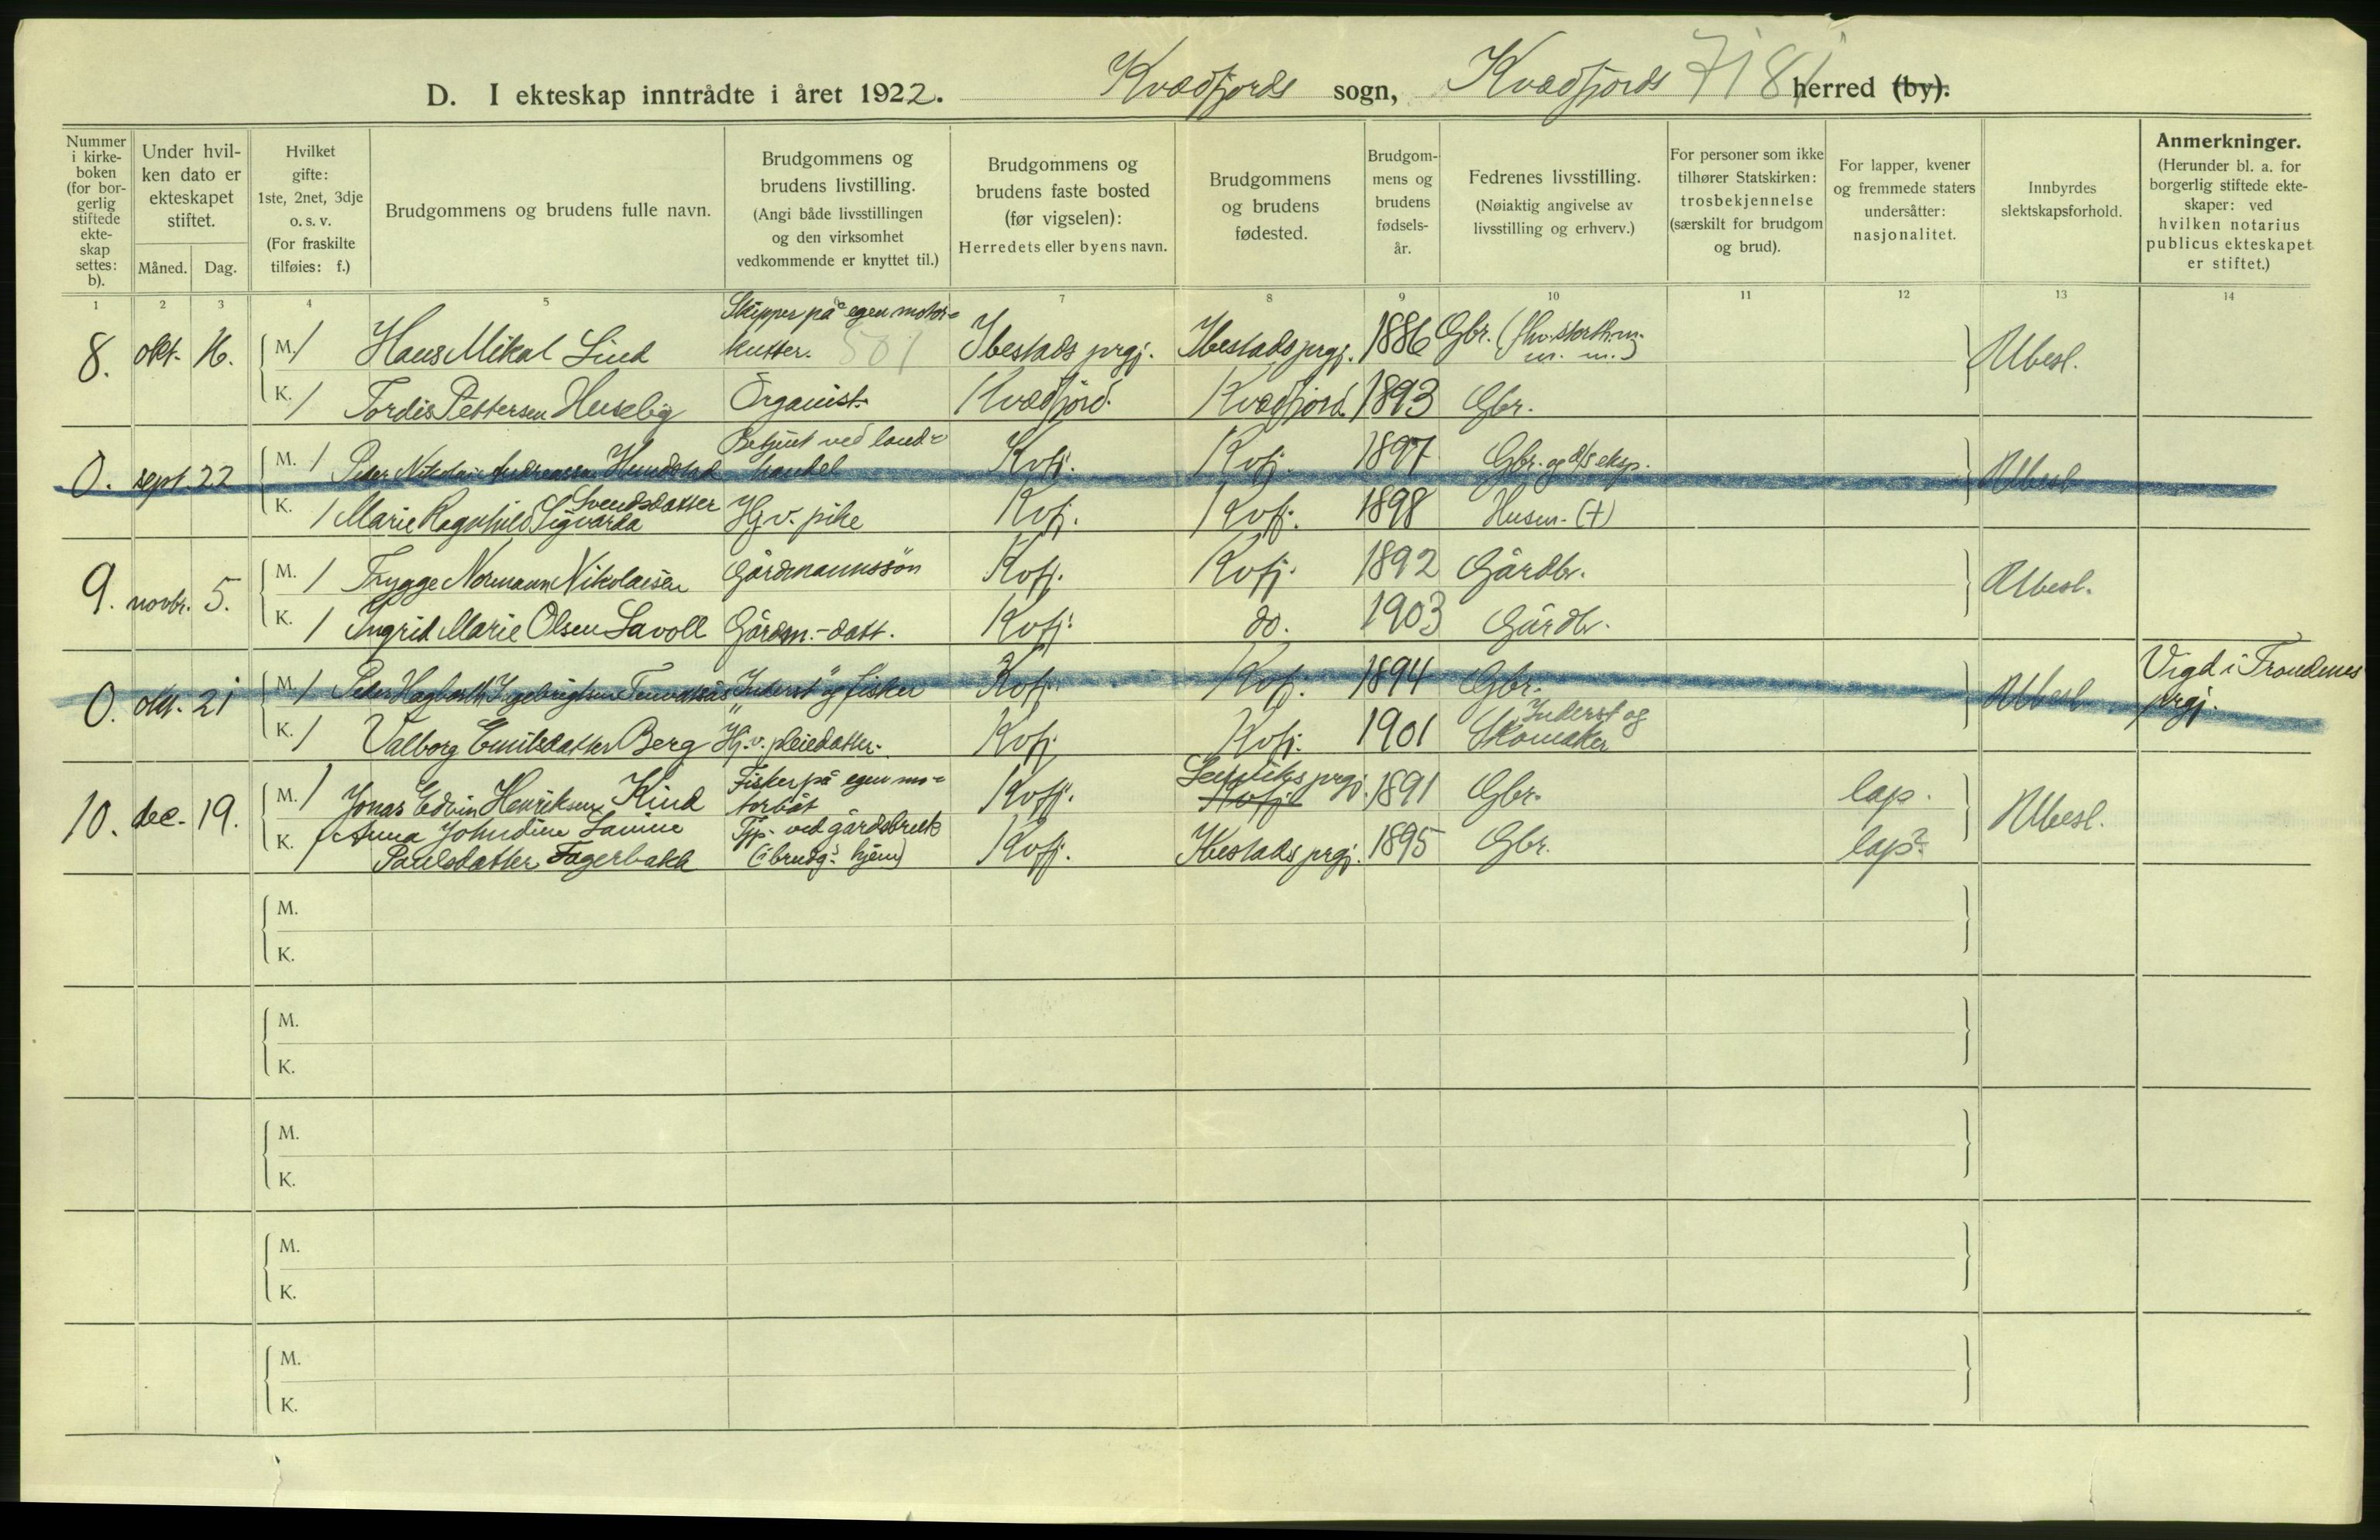 D. I ekteskap inntrådte i året 1922. Kvædfjords sogn, Kvædfjords herred (by).
Nummer i kirkeboken (for borgerlig stiftede ekteskap settes: b).
Under hvilken dato er ekteskapet stiftet.
Måned. Dag.
Hvilket gifte: 1ste, 2net, 3dje o. s. v. (For fraskilte tilføies: f.)
Brudgommens og brudens fulle navn.
Brudgommens og brudens livstilling. (Angi både livsstillingen og den virksomhet vedkommende er knyttet til.)
Brudgommens og brudens faste bosted (før vigselen): Herredets eller byens navn.
Brudgommens og brudens fødested.
Brudgommens og brudens fødselsår.
Fedrenes livsstilling. (Nøiaktig angivelse av livsstilling og erhverv.)
For personer som ikke tilhører Statskirken: trosbekjennelse (særskilt for brudgom og brud).
For lapper, kvener og fremmede staters undersåtter: nasjonalitet.
Innbyrdes slektskapsforhold.
Anmerkninger. (Herunder bl. a. for borgerlig stiftede ekteskaper: ved hvilken notarius publicus ekteskapet er stiftet.)
1 2 3 4 5 7 8 9 10 11 12 13 14
8. okt. 16. M. 1 Hans Mikal Lind Skipper på egen motorkutter. 501 Ibestads prgj. Ibestads prgj. 1886 Gbr. (fhv. storth.m. m. m.) Ubesl.
K. 1 Tordis Pettersen Huseby Organist. Kvædfjord. Kvædfjord. 1893 Gbr.
0. sept. 22 M. 1 Peder Nikolai Andreassen Hundstad Betjent ved landhandel Kvfj. Kvfj. 1897 Gbr. og d/s eksp. Ubesl.
K. 1 Marie Ragnhild Sigvarda Svendsdatter Hj. v. pike Kvfj. Kvfj. 1898 Husm. (+)
9. novbr. 5. M. 1 Trygge Normann Nikolaisen Gårdmannssön Kvfj. Kvfj. 1892 Gårdbr. Ubesl.
K. 1 Ingrid Marie Olsen Lavoll Gårdm.-datt. Kvfj. do. 1903 Gårdbr.
0. okt. 21 M. 1 Peder Hagbarth Ingebrigtsen Inderst og fisker Kvfj. Kvfj. 1894 Gbr. Ubesl. Vigd i Trondenes prgj.
K. 1 Valborg Emilsdatter Berg Hj. v. pleiedatter. Kvfj. Kvfj. 1901 Inderst og Skomaker
10. dec. 19. M. 1 Jonas Edvin Henriksen Kind Fisker på egen motorbåt Kvfj. Kvfj. Lenviks prgj. 1891 Gbr. lap. Ubesl.
K. 1 Anna Johndine Lanine Paulsdatter Fagerbakk Tjp. ved gårdsbruk (i brudg.s hjem) Kvfj. Ibestads prgj. 1895 Gbr. lap?
M.
K.
M.
K.
M.
K.
M.
K.
M.
K.